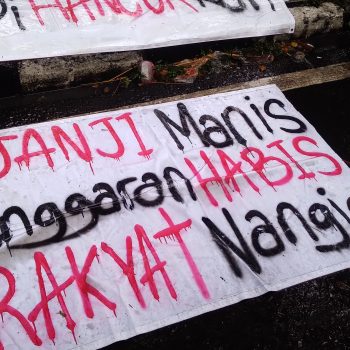 HANCUR
JANJI Manis
anggaran HABIS
RAKYAT Nangis